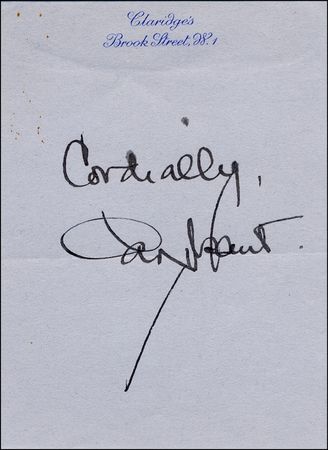 Claridge's
Brook Street, W.1
Cordially,
Cary Grant.